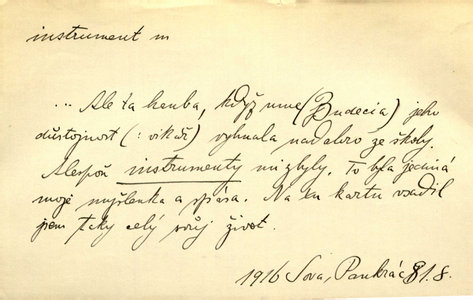 instrument m
... Ale ta hanba, když mne (Budecia) jeho
důstojnost (: vikář) vyhnala nadobro ze školy.
Alespoň instrumenty mi zbyly. To byla jediná
moje myšlenka a spása. Na tu kartu vsadil
jsem taky celý svůj život.
1916 Sova, Pankrác 81.8.